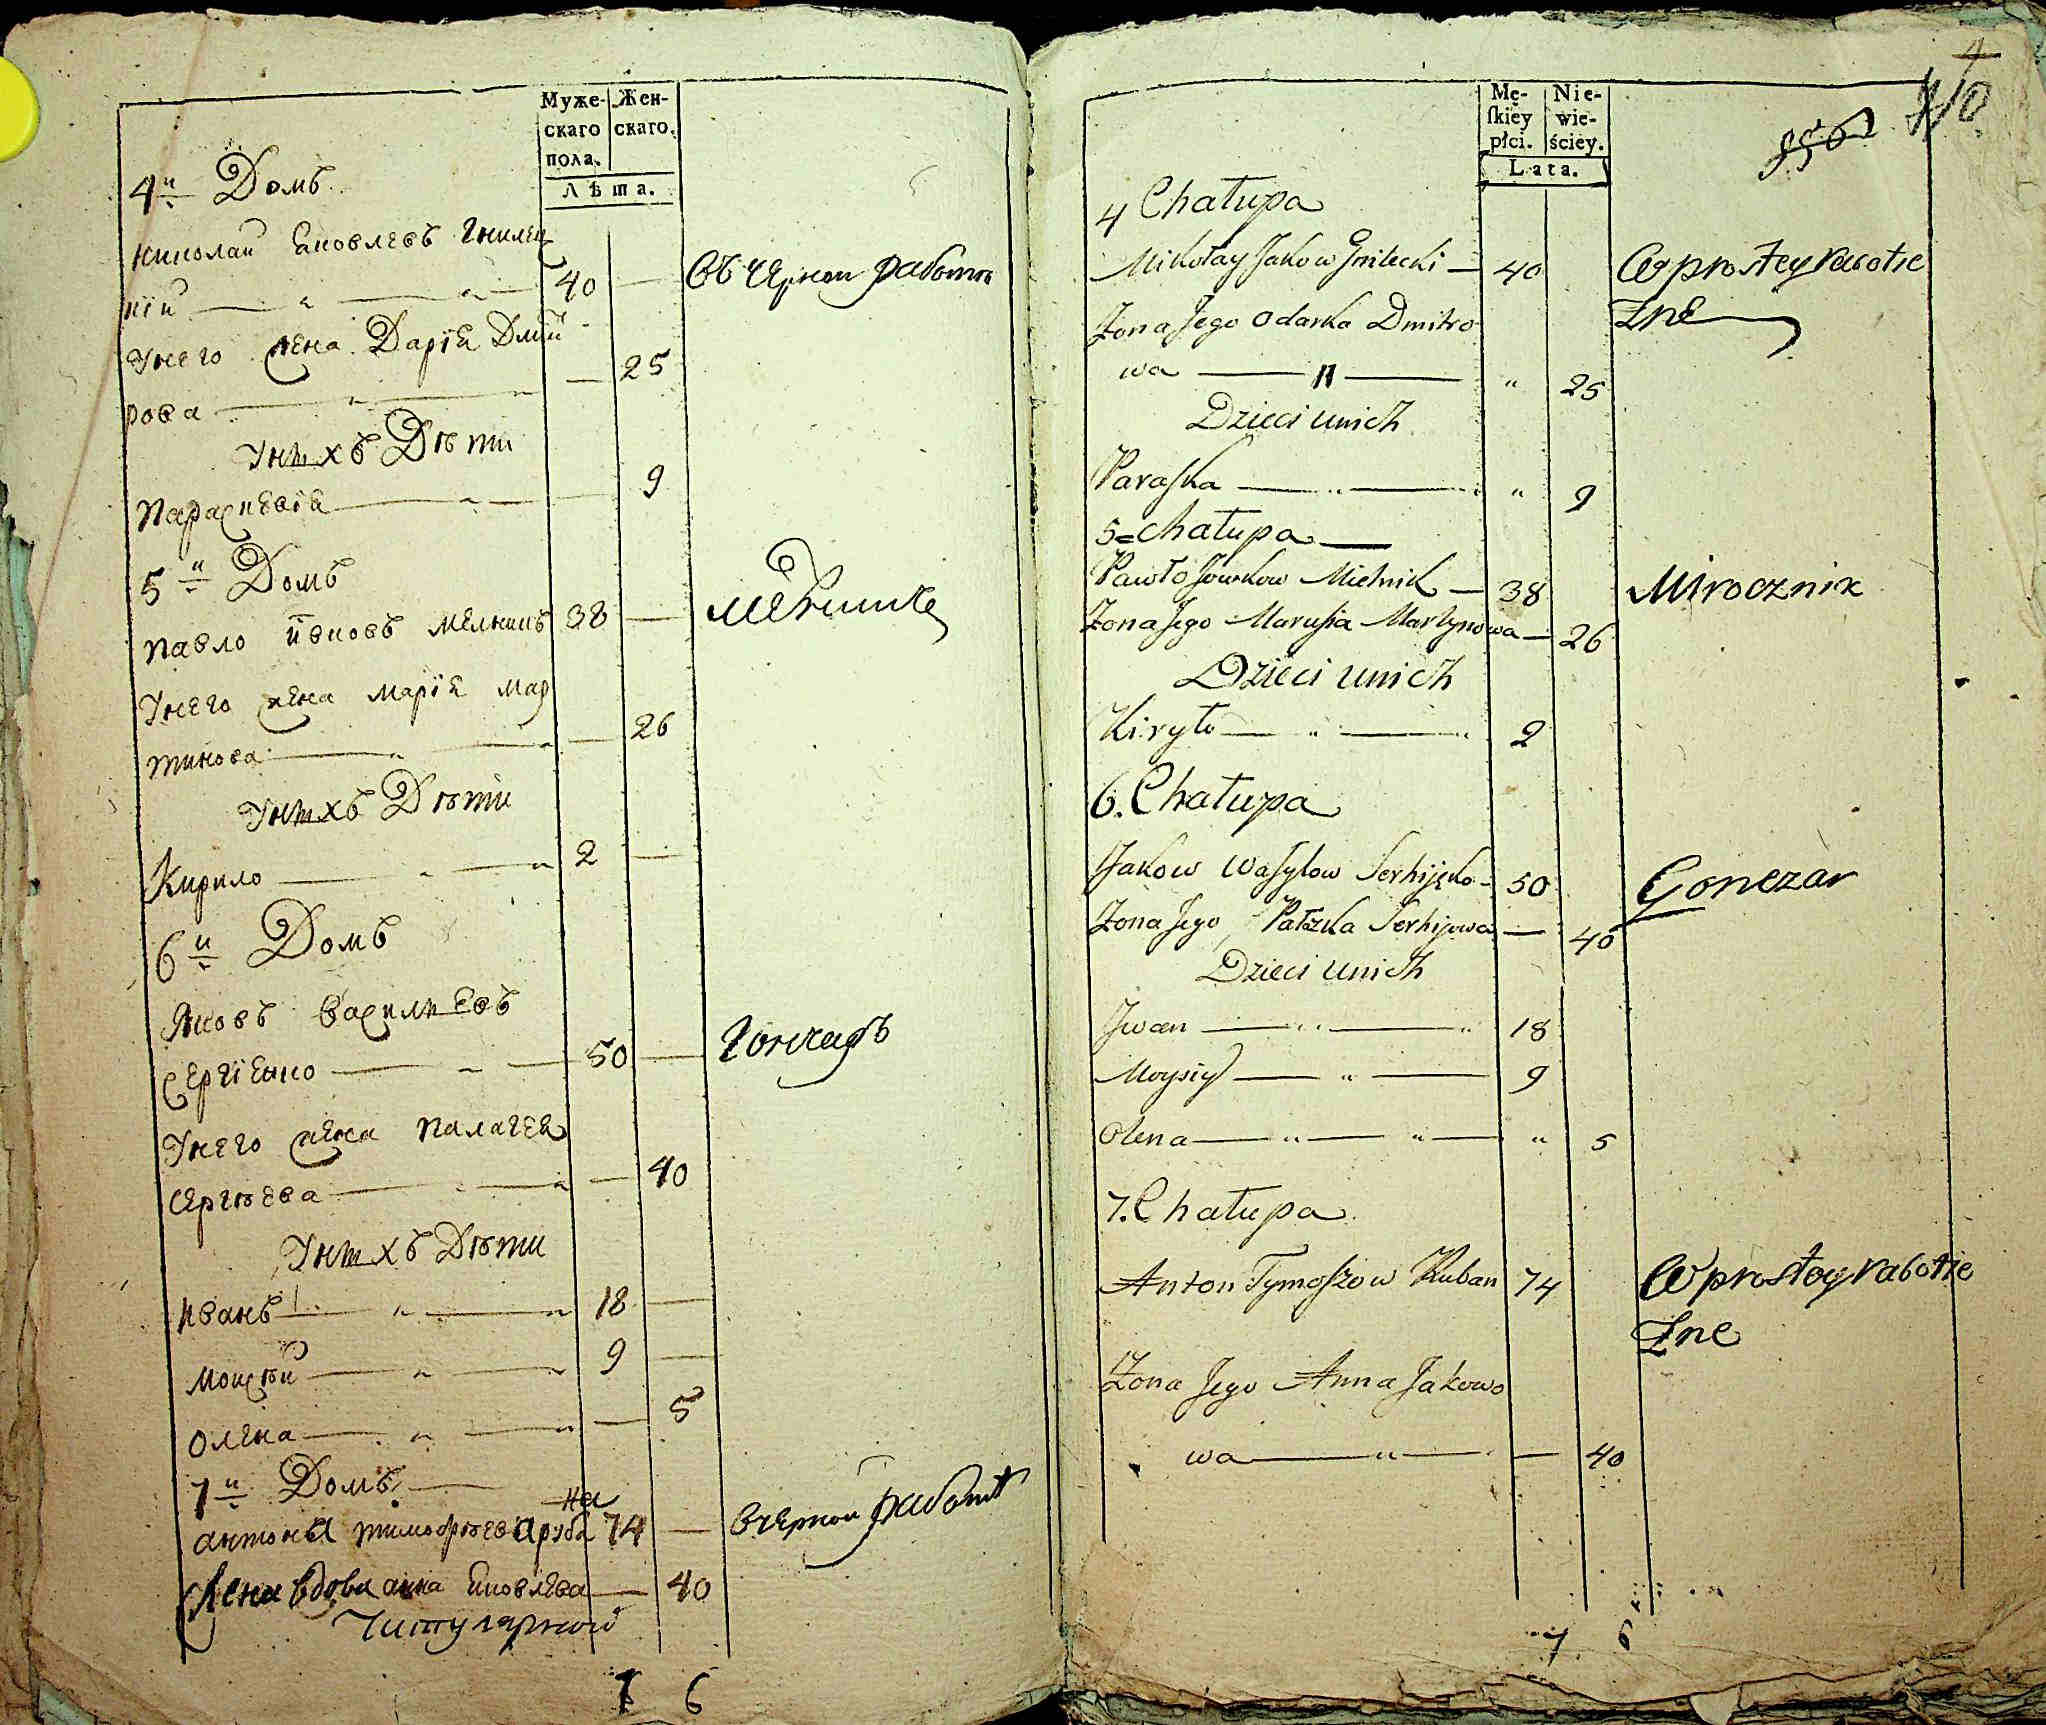 Муже-
скаго
пола.
Жен-
скаго.
Лѣта.
4й Домъ
Николай Яковлевъ Гнилец
кій — " — " — 40 — въ черной работѣ
У него жена Дарія Дмит
рова — " — — 25
У нихъ Дѣти
Параскевія — " — — 9
5й Домъ
Павло Ивковъ Мелникъ 38 —
У него жена Марія Мар
тинова — " — — 26
У нихъ Дѣти
Кирило — " — " 2 —
6й Домъ
Яковъ Василиевъ
Сергіенко — " — 50 — Гончаръ
У него жена Палагея
Сергѣева — " — " — 40
У нихъ Дѣти
Иванъ — " — " 18 —
Моисѣй — " — " 9 —
Олена — " — " — 5
7й Домъ —
на
антона тимофѣева руба 74 — в черной работѣ
Жена вдова анна Яковлева — 40
7 6
Mę-
ſkiey
płci.
Nie-
wie-
ściey.
Lata.
4
10
856
4 Chałupa
Mikołay Jakow Gnilecki — 40 W prostey rabotie
Żona Jego Odarka Dmitro
wa — " — " 25
Dzieci unich
Paraſka — " — " 9
5 = Chałupa —
Pawło Jowkow Mielnik — 38 Mirocznik
Żona Jego Marusia Martynowa — 26
Dzieci unich
Kiryło — " — " 2
6. Chałupa
Jakow Waſylow Serhijęko — 50 Gonczar
Żona Jego Pałazka Serhijowa — 40
Dzieci unich
Jwan — " — " 18
Moysiy — " — 9
Olena — " — " — " 5
7. Chałupa
Anton Tymoſzow Kuban 74 W prostey rabotie
Żona Jego Anna Jakowo
wa — " — — 40
7